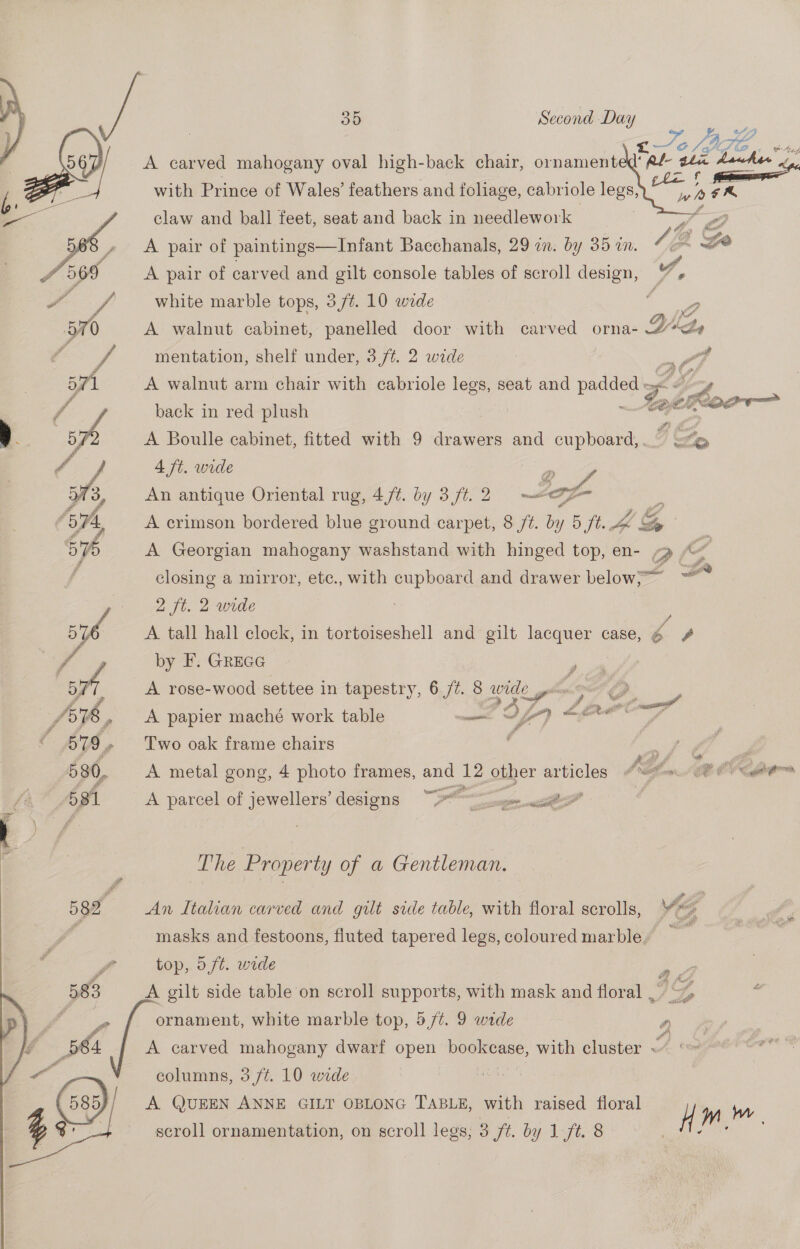 35 Second Day
567 A carved mahogany oval high-back chair, ornamented
with Prince of Wales' feathers and foliage, cabriole legs,
claw and ball feet, seat and back in needlework
568 A pair of paintings—Infant Bacchanals, 29 in. by 35 in.
569 A pair of carved and gilt console tables of scroll design,
white marble tops, 3 ft. 10 wide
570 A walnut cabinet, panelled door with carved orna-
mentation, shelf under, 3 ft. 2 wide
571 A walnut arm chair with cabriole legs, seat and padded
back in red plush
572 A Boulle cabinet, fitted with 9 drawers and cupboard,
4 ft. wide
573 An antique Oriental rug, 4 ft. by 3 ft. 2
574 A crimson bordered blue ground carpet, 8 ft. by 5 ft.
575 A Georgian mahogany washstand with hinged top, en-
closing a mirror, etc., with cupboard and drawer below,
2 ft. 2 wide
576 A tall hall clock, in tortoiseshell and gilt lacquer case,
by F. GREGG
577 A rose-wood settee in tapestry, 6 ft. 8 wide
578 A papier maché work table
579 Two oak frame chairs
580 A metal gong, 4 photo frames, and 12 other articles
581 A parcel of jewellers' designs
The Property of a Gentleman.
582 An Italian carved and gilt side table, with floral scrolls,
masks and festoons, fluted tapered legs, coloured marble
top, 5 ft. wide
583 A gilt side table on scroll supports, with mask and floral
ornament, white marble top, 5 ft. 9 wide
584 A carved mahogany dwarf open bookcase, with cluster
columns, 3 ft. 10 wide
585 A QUEEN ANNE GILT OBLONG TABLE, with raised floral
scroll ornamentation, on scroll legs, 3 ft. by 1 ft. 8